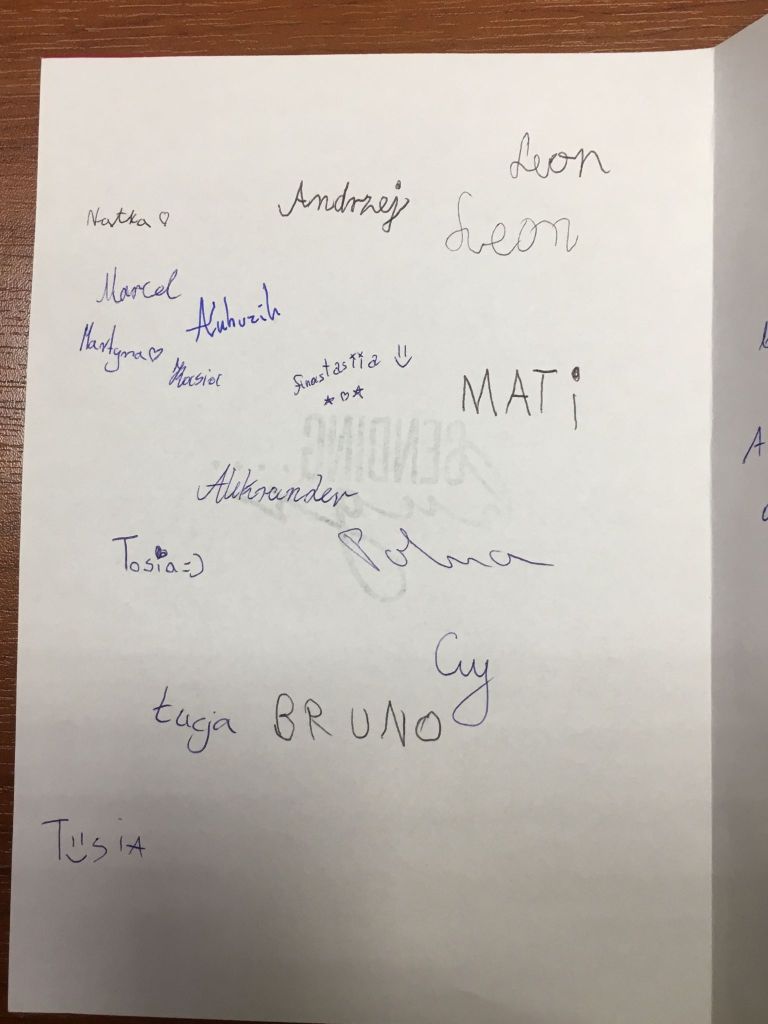 Leon
Andrzej
Natka ♡
Leon
Marcel
Martyna ♡
Kasia
Anastasiia
MATi
Aleksander
Tosia =)
Cy
Łucja
BRUNO
TUSiA
SENDING